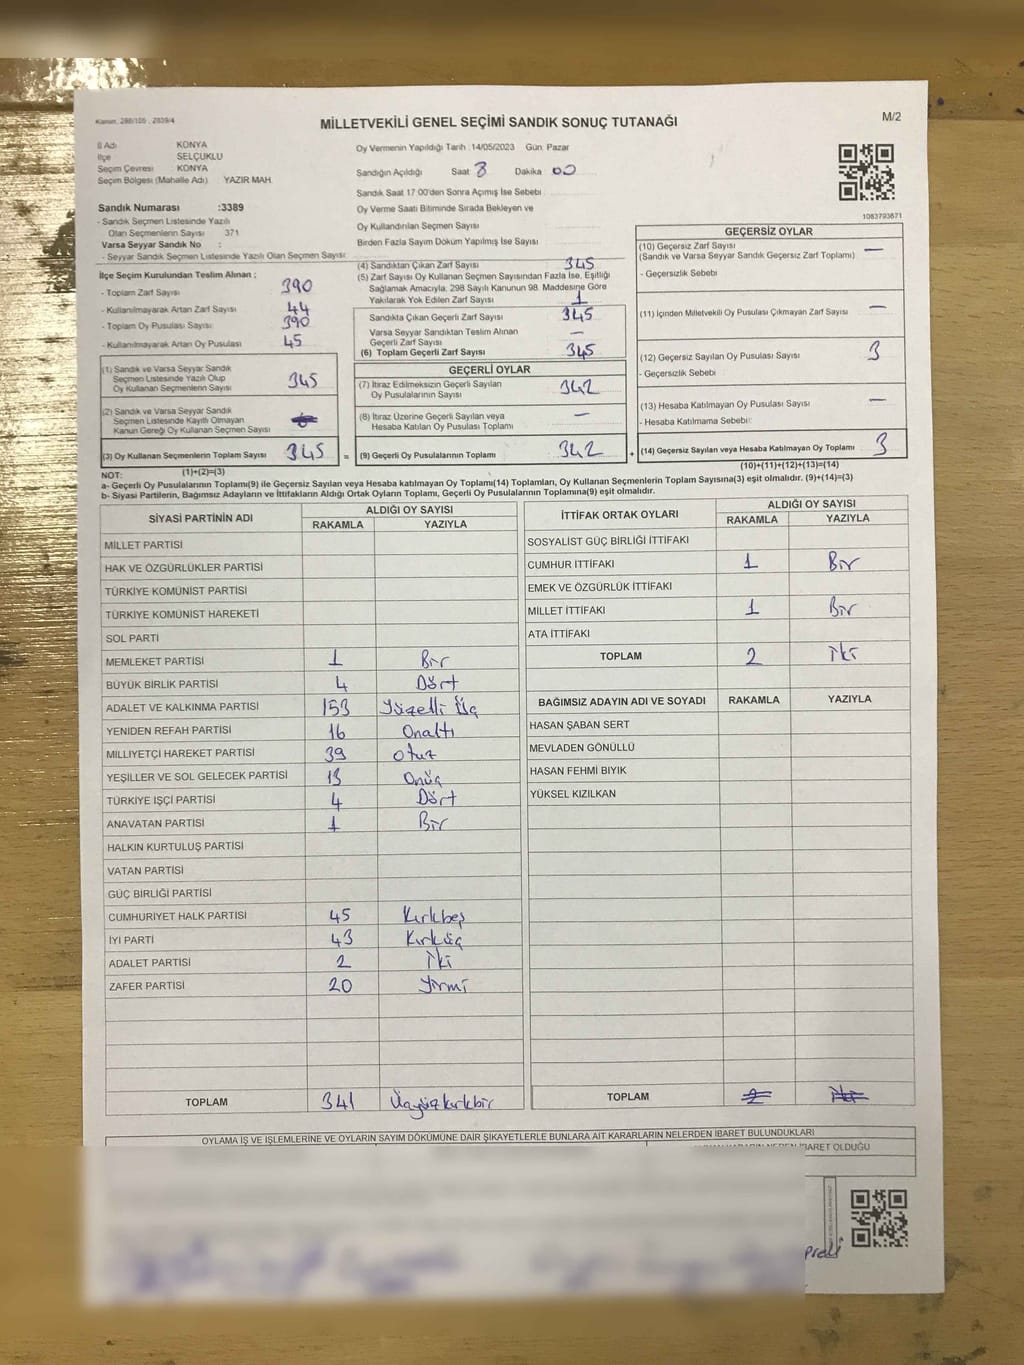 Kanun. 298/105 , 2839/4
MİLLETVEKİLİ GENEL SEÇİMİ SANDIK SONUÇ TUTANAĞI
M/2
İl Adı KONYA
İlçe SELÇUKLU
Seçim Çevresi KONYA
Seçim Bölgesi (Mahalle Adı) YAZIR MAH.
Oy Vermenin Yapıldığı Tarih :14/05/2023 Gün: Pazar
Sandığın Açıldığı Saat 8 Dakika 00
Sandık Saat 17:00'den Sonra Açımış İse Sebebi
Oy Verme Saati Bitiminde Sırada Bekleyen ve
Oy Kullandırılan Seçmen Sayısı
Birden Fazla Sayım Döküm Yapılmış İse Sayısı
Sandık Numarası :3389
- Sandık Seçmen Listesinde Yazılı
Olan Seçmenlerin Sayısı 371
Varsa Seyyar Sandık No :
- Seyyar Sandık Seçmen Listesinde Yazılı Olan Seçmen Sayısı
1083793671
İlçe Seçim Kurulundan Teslim Alınan :
- Toplam Zarf Sayısı 390
- Kullanılmayarak Artan Zarf Sayısı 44
- Toplam Oy Pusulası Sayısı 390
- Kullanılmayarak Artan Oy Pusulası 45
(1) Sandık ve Varsa Seyyar Sandık
Seçmen Listesinde Yazılı Olup
Oy Kullanan Seçmenlerin Sayısı 345
(2) Sandık ve Varsa Seyyar Sandık
Seçmen Listesinde Kayıtlı Olmayan
Kanun Gereği Oy Kullanan Seçmen Sayısı
(3) Oy Kullanan Seçmenlerin Toplam Sayısı 345 =
(4) Sandıktan Çıkan Zarf Sayısı 345
(5) Zarf Sayısı Oy Kullanan Seçmen Sayısından Fazla İse, Eşitliği
Sağlamak Amacıyla, 298 Sayılı Kanunun 98. Maddesine Göre
Yakılarak Yok Edilen Zarf Sayısı 1
Sandıkta Çıkan Geçerli Zarf Sayısı 345
Varsa Seyyar Sandıktan Teslim Alınan
Geçerli Zarf Sayısı —
(6) Toplam Geçerli Zarf Sayısı 345
GEÇERLİ OYLAR
(7) İtiraz Edilmeksizin Geçerli Sayılan
Oy Pusulalarının Sayısı 342
(8) İtiraz Üzerine Geçerli Sayılan veya
Hesaba Katılan Oy Pusulası Toplamı —
(9) Geçerli Oy Pusulalarının Toplamı 342 +
GEÇERSİZ OYLAR
(10) Geçersiz Zarf Sayısı —
(Sandık ve Varsa Seyyar Sandık Geçersiz Zarf Toplamı)
- Geçersizlik Sebebi
(11) İçinden Milletvekili Oy Pusulası Çıkmayan Zarf Sayısı —
(12) Geçersiz Sayılan Oy Pusulası Sayısı 3
- Geçersizlik Sebebi
(13) Hesaba Katılmayan Oy Pusulası Sayısı —
- Hesaba Katılmama Sebebi:
(14) Geçersiz Sayılan veya Hesaba Katılmayan Oy Toplamı 3
NOT: (1)+(2)=(3)
(10)+(11)+(12)+(13)=(14)
a- Geçerli Oy Pusulalarının Toplamı(9) ile Geçersiz Sayılan veya Hesaba katılmayan Oy Toplamı(14) Toplamları, Oy Kullanan Seçmenlerin Toplam Sayısına(3) eşit olmalıdır. (9)+(14)=(3)
b- Siyasi Partilerin, Bağımsız Adayların ve İttifakların Aldığı Ortak Oyların Toplamı, Geçerli Oy Pusulalarının Toplamına(9) eşit olmalıdır.
SİYASİ PARTİNİN ADI ALDIĞI OY SAYISI
RAKAMLA YAZIYLA
MİLLET PARTİSİ
HAK VE ÖZGÜRLÜKLER PARTİSİ
TÜRKİYE KOMÜNİST PARTİSİ
TÜRKİYE KOMÜNİST HAREKETİ
SOL PARTİ
MEMLEKET PARTİSİ 1 Bir
BÜYÜK BİRLİK PARTİSİ 4 Dört
ADALET VE KALKINMA PARTİSİ 153 Yüzelli Üç
YENİDEN REFAH PARTİSİ 16 Onaltı
MİLLİYETÇİ HAREKET PARTİSİ 39 otuz
YEŞİLLER VE SOL GELECEK PARTİSİ 13 Onüç
TÜRKİYE İŞÇİ PARTİSİ 4 Dört
ANAVATAN PARTİSİ 1 Bir
HALKIN KURTULUŞ PARTİSİ
VATAN PARTİSİ
GÜÇ BİRLİĞİ PARTİSİ
CUMHURİYET HALK PARTİSİ 45 Kırkbeş
İYİ PARTİ 43 Kırküç
ADALET PARTİSİ 2 İki
ZAFER PARTİSİ 20 Yirmi
TOPLAM 341 Üçyüzkırkbir
İTTİFAK ORTAK OYLARI ALDIĞI OY SAYISI
RAKAMLA YAZIYLA
SOSYALİST GÜÇ BİRLİĞİ İTTİFAKI
CUMHUR İTTİFAKI 1 Bir
EMEK VE ÖZGÜRLÜK İTTİFAKI
MİLLET İTTİFAKI 1 Bir
ATA İTTİFAKI
TOPLAM 2 İki
BAĞIMSIZ ADAYIN ADI VE SOYADI RAKAMLA YAZIYLA
HASAN ŞABAN SERT
MEVLADEN GÖNÜLLÜ
HASAN FEHMİ BIYIK
YÜKSEL KIZILKAN
TOPLAM 2 İki
OYLAMA İŞ VE İŞLEMLERİNE VE OYLARIN SAYIM DÖKÜMÜNE DAİR ŞİKAYETLERLE BUNLARA AİT KARARLARIN NELERDEN İBARET BULUNDUKLARI
İBARET OLDUĞU